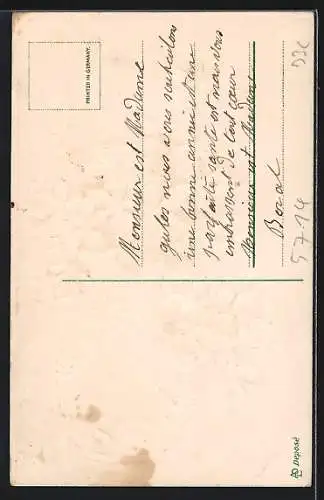 PRINTED IN GERMANY.
Monsieur est Madame
gules nous vous souhaitons
une bonne année et une
parfaite sante est nous vous
embrassont de tout cœur
Monsieur est Madame
Bonal
5714
Déposé